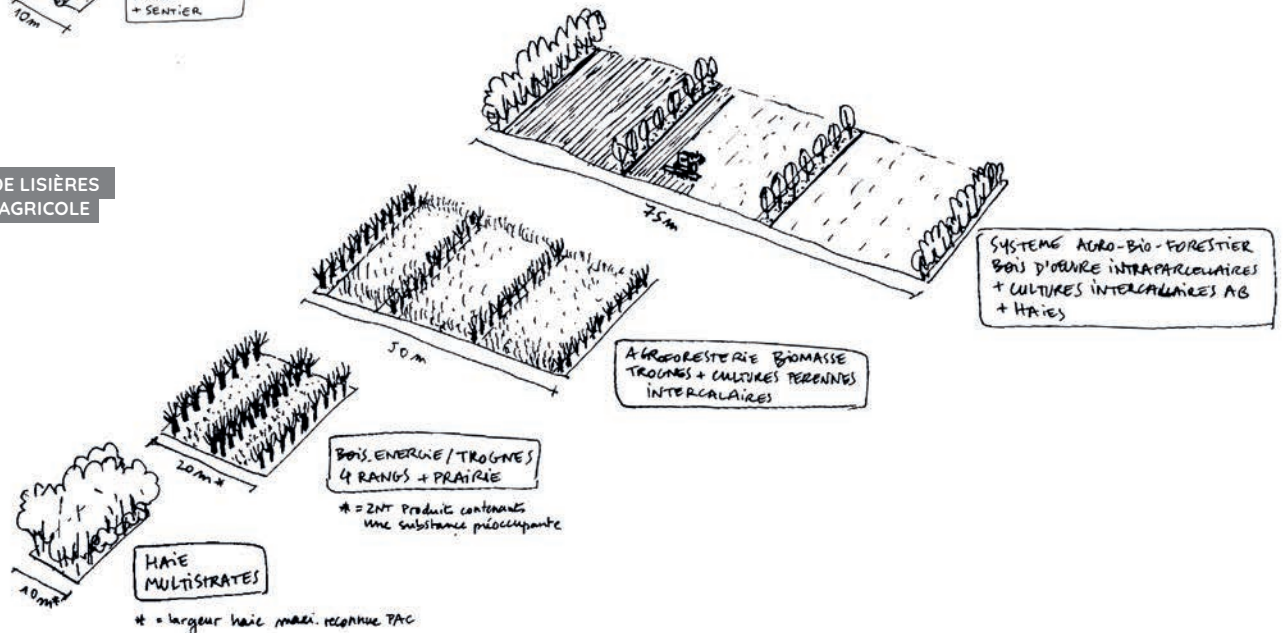 10m
+ SENTIER
DE LISIÈRES
AGRICOLE
75m
SYSTEME AGRO-BIO-FORESTIER
BOIS D'ŒUVRE INTRAPARCELLAIRES
+ CULTURES INTERCALLAIRES AB
+ HAIES
50m
AGROFORESTERIE BIOMASSE
TROGNES + CULTURES PERENNES
INTERCALAIRES
20m*
BOIS ENERGIE/TROGNES
4 RANGS + PRAIRIE
* = ZNT Produits contenants
une substance préoccupante
10m*
HAIE
MULTISTRATES
* = largeur haie maxi. reconnue PAC